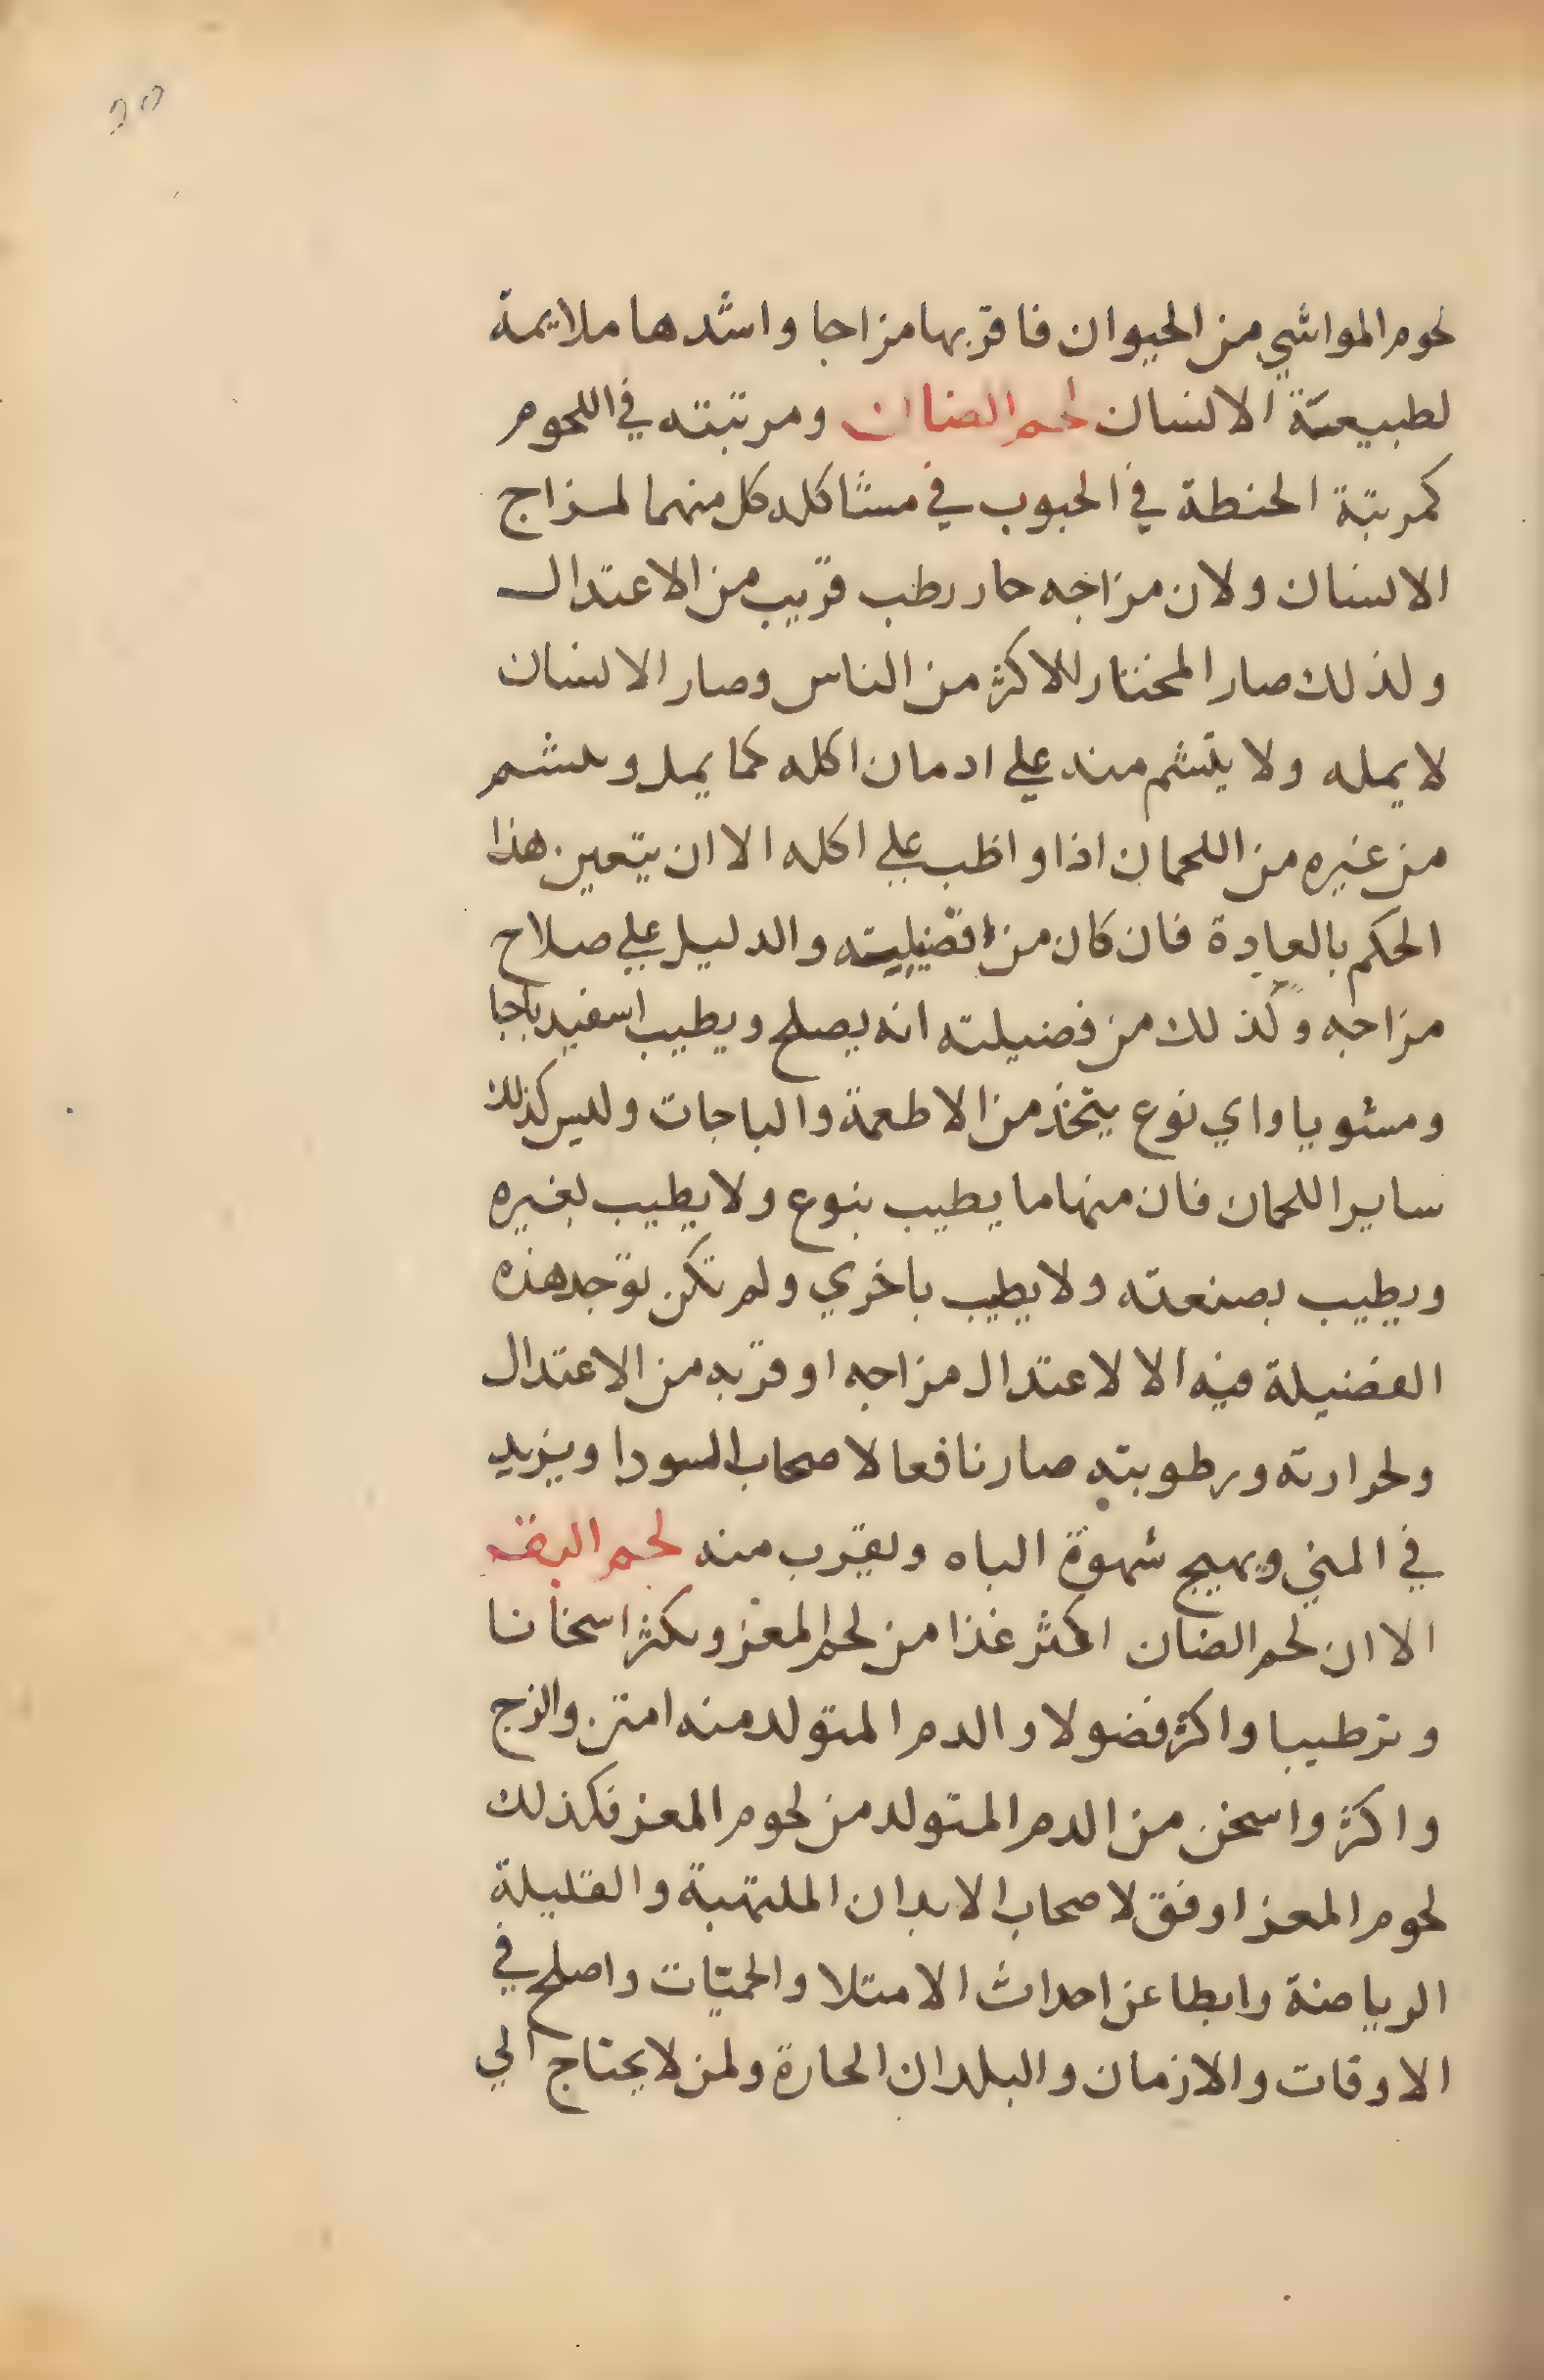 ٥٥
لحوم المواشي من الحيوان فاقربها مزاجا واشدها ملايمة
لطبيعة الانسان لحم الضان ومرتبته في اللحوم
كمرتبة الحنطة في الحبوب في مشاكله كل منهما لمزاج
الانسان ولان مزاجه حار رطب قريب من الاعتدال
ولذلك صار المختار للاكثر من الناس وصار الانسان
لا يمله ولا يتشم منه علي ادمان اكله كما يمل ويتشم
من غيره من اللحمان اذا واظب علي اكله الا ان يتعين هذا
الحكم بالعادة فان كان من افضيليته والدليل علي صلاح
مزاجه وكذلك من فضيلته انه يصلح ويطيب اسفيدباجا
ومشويا واي نوع يتخذ من الاطعمة والباجات وليس كذلك
ساير اللحمان فان منها ما يطيب بنوع ولا يطيب بغيره
ويطيب بصنعته ولا يطيب باخري ولم تكن توجد هذه
الفضيلة فيه الا لاعتدال مزاجه او قربه من الاعتدال
ولحرارته ورطوبته صار نافعا لاصحاب السودا ويزيد
في المني ويهيج شهوة الباه ويقرب منه لحم البقر
الا ان لحم الضان اكثر غذا من لحم المعز ويكثر اسخانا
وترطيبا واكثر فضولا والدم المتولد منه امتن والزج
واكثر واسخن من الدم المتولد من لحوم المعز فكذلك
لحوم المعز اوفق لاصحاب الابدان الملتهبة والقليلة
الرياضة وابطا عن احداث الامتلا والحميّات واصلح في
الاوقات والازمان والبلدان الحارة ولمن لا يحتاج الي